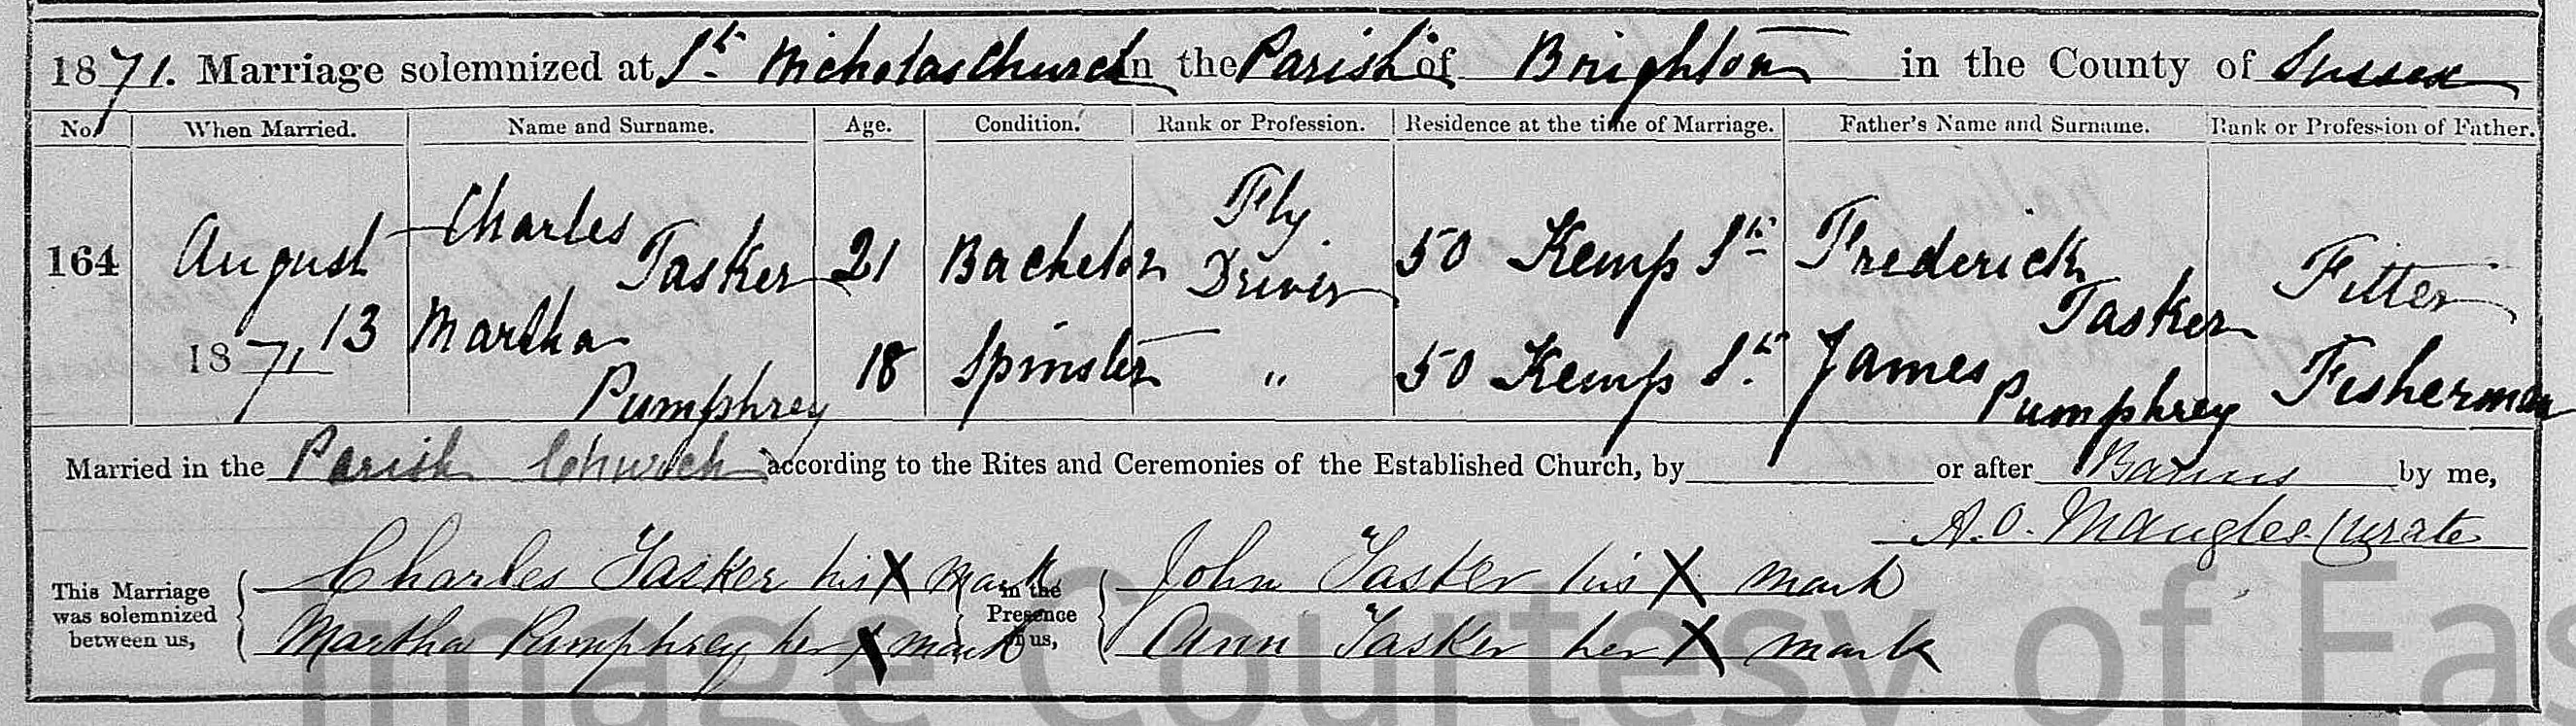 1871. Marriage solemnized at St. Nicholas Church in the Parish of Brighton in the County of Sussex
No. When Married. Name and Surname. Age. Condition. Rank or Profession. Residence at the time of Marriage. Father's Name and Surname. Rank or Profession of Father.
164 August 13 1871 Charles Tasker 21 Bachelor Fly Driver 50 Kemp St. Frederick Tasker Fitter
Martha Pumphrey 18 Spinster " 50 Kemp St. James Pumphrey Fisherman
Married in the Parish Church according to the Rites and Ceremonies of the Established Church, by or after Banns by me,
A.O. Mangles. Curate
This Marriage was solemnized between us, Charles Tasker his X mark in the Presence of us, John Tasker his X mark
Martha Pumphrey her X mark Ann Tasker her X mark
Image Courtesy of Eas